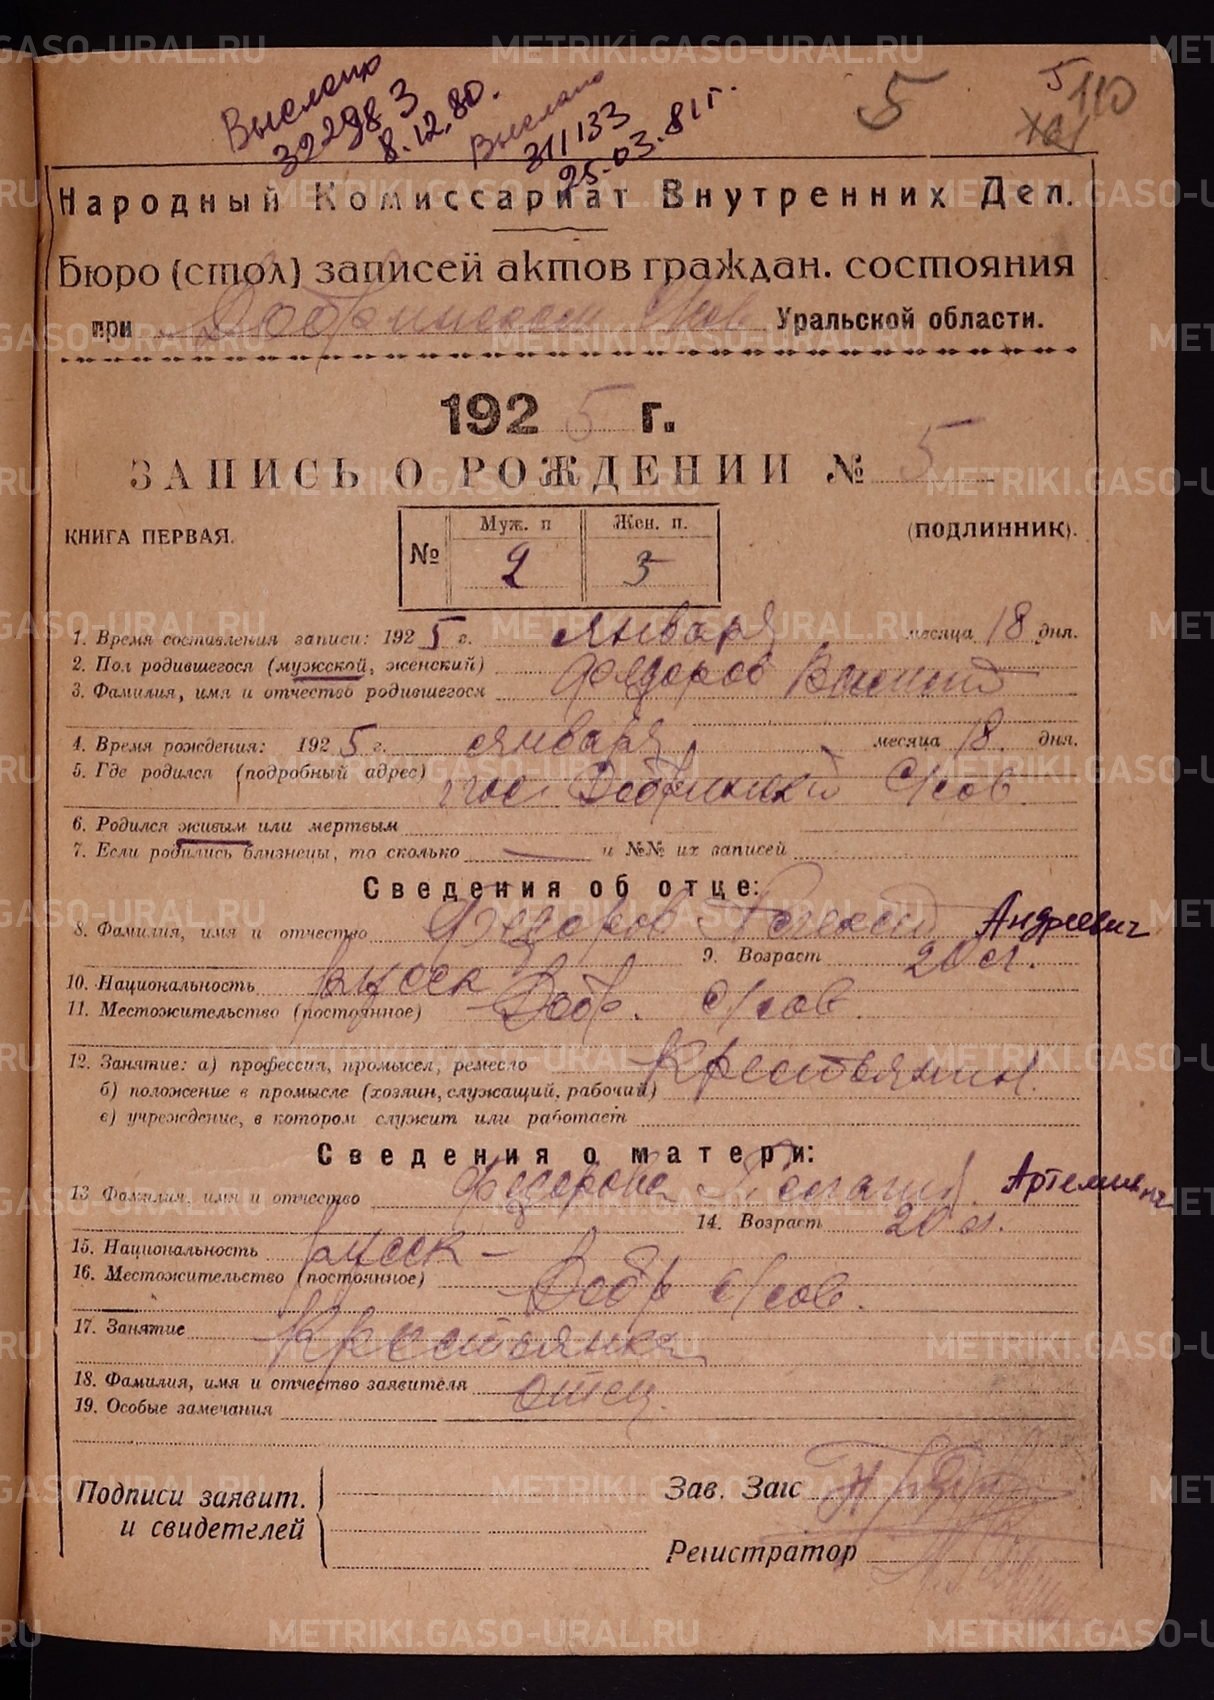 Выслано
32298 3
8.12.80.
Выслано
311133
25-03-81г.
5
5
110
Народный Комиссариат Внутренних Дел.
Бюро (стол) записей актов граждан. состояния
при Уральской области.
1925 г.
ЗАПИСЬ О РОЖДЕНИИ № 5
КНИГА ПЕРВАЯ.
(ПОДЛИННИК).
№ Муж. п Жен. п.
2 3
1. Время составления записи: 1925 г. января месяца 18 дня.
2. Пол родившегося (мужской, женский)
3. Фамилия, имя и отчество родившегося Федоров
4. Время рождения: 1925 г. января месяца 18 дня.
5. Где родился (подробный адрес)
6. Родился живым или мертвым
7. Если родились близнецы, то сколько — и №№ их записей
Сведения об отце:
8. Фамилия, имя и отчество Федоров Андреевич
9. Возраст 20 л.
10. Национальность русск
11. Местожительство (постоянное) Добр.
12. Занятие: а) профессия, промысел, ремесло Крестьянин.
б) положение в промысле (хозяин, служащий, рабочий)
в) учреждение, в котором служит или работает
Сведения о матери:
13 Фамилия, имя и отчество Федорова
14. Возраст 20 л.
15. Национальность русск –
16. Местожительство (постоянное) Добр
17. Занятие Крестьянка
18. Фамилия, имя и отчество заявителя отец.
19. Особые замечания
Подписи заявит.
и свидетелей
Зав. Загс
Регистратор
METRIKI.GASO-URAL.RU